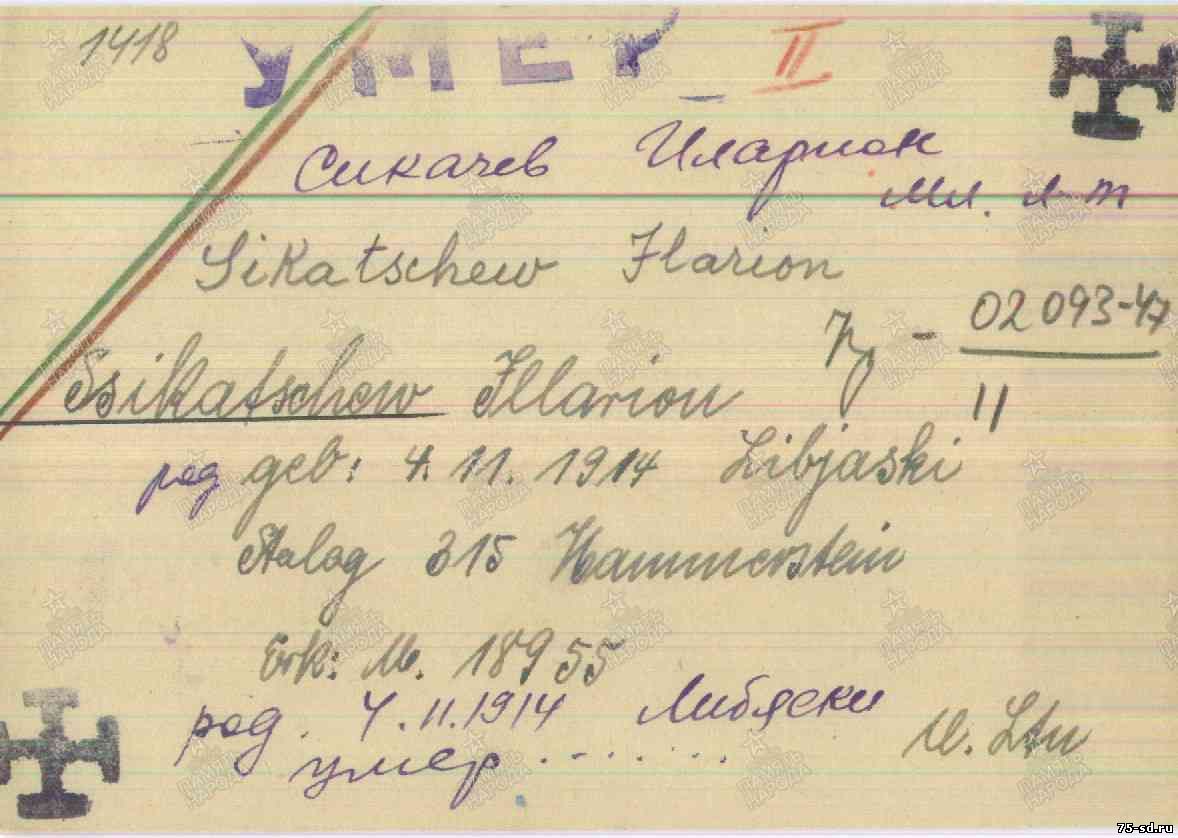 1418
УМЕР
II
Сикачев Иларион
мл. л-т
Sikatschew Ilarion
02093-47
11
Ssikatschew Illarion
род geb: 4. 11. 1914 Libjaski
Stalag 315 Hammerstein
Erk: M. 18955
род. 4.11.1914 Либяски
U. Ltn
умер . . . . . . .
ПАМЯТЬ НАРОДА
75-sd.ru